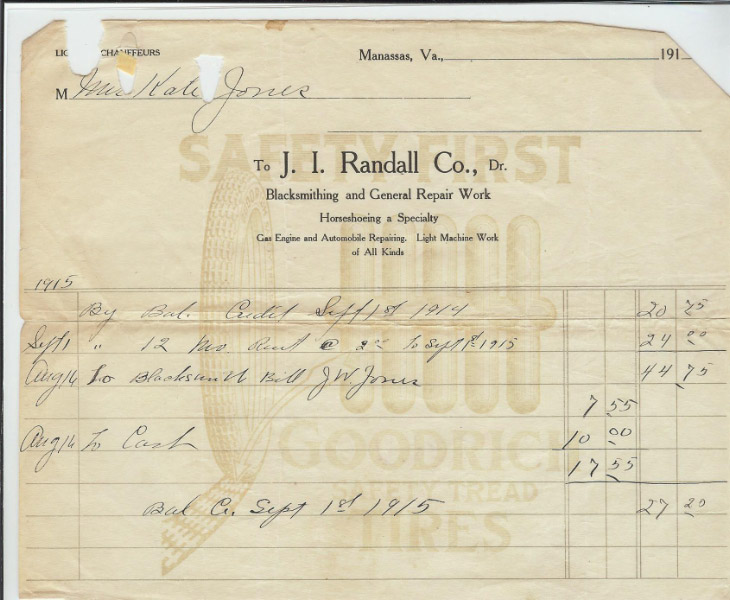 CHAUFFEURS
Manassas, Va., 191
M Mrs Kate Jones
SAFETY FIRST
To J. I. Randall Co., Dr.
Blacksmithing and General Repair Work
Horseshoeing a Specialty
Gas Engine and Automobile Repairing. Light Machine Work
of All Kinds
1915
By Bal. Credit Sept 1st 1914 20 75
Sept 1 " 12 Mo. Rent @ 2 00 to Sept 1st 1915 24 00
Aug 14 To Blacksmith Bill J W Jones 44 75
7 55
Aug 14 To Cash 10 00
GOODRICH
17 55
SAFETY TREAD
Bal Cr. Sept 1st 1915 27 20
TIRES